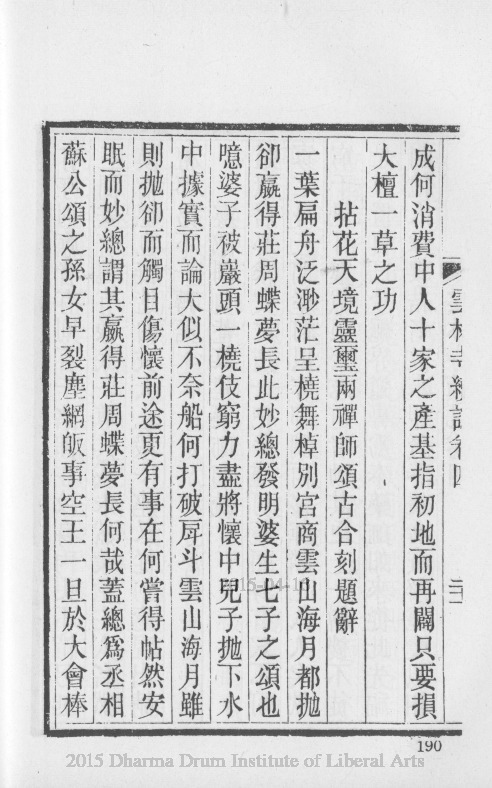 雲林寺續誌卷四
二十一
成何消費中人十家之產基指初地而再闢只要損
大檀一草之功
拈花天境靈璽兩禪師頌古合刻題辭
一葉扁舟泛渺茫呈橈舞棹別宮商雲山海月都拋
卻贏得莊周蝶夢長此妙總發明婆生七子之頌也
噫婆子被巖頭一橈伎窮力盡將懷中兒子拋下水
中據實而論大似不奈船何打破戽斗雲山海月雖
則拋卻而觸目傷懷前途更有事在何嘗得帖然安
眠而妙總謂其贏得莊周蝶夢長何哉蓋總為丞相
蘇公頌之孫女早裂塵網皈事空王一旦於大會棒
190
2015 Dharma Drum Institute of Liberal Arts